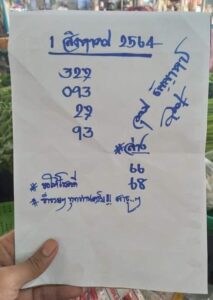 1 สิงหาคม 2564
327
093
27
93
* ล่าง
66
68
* ขอให้โชคดี
* ร่ำรวยๆ ทุกท่านครับ!!! สาธุ..ๆ